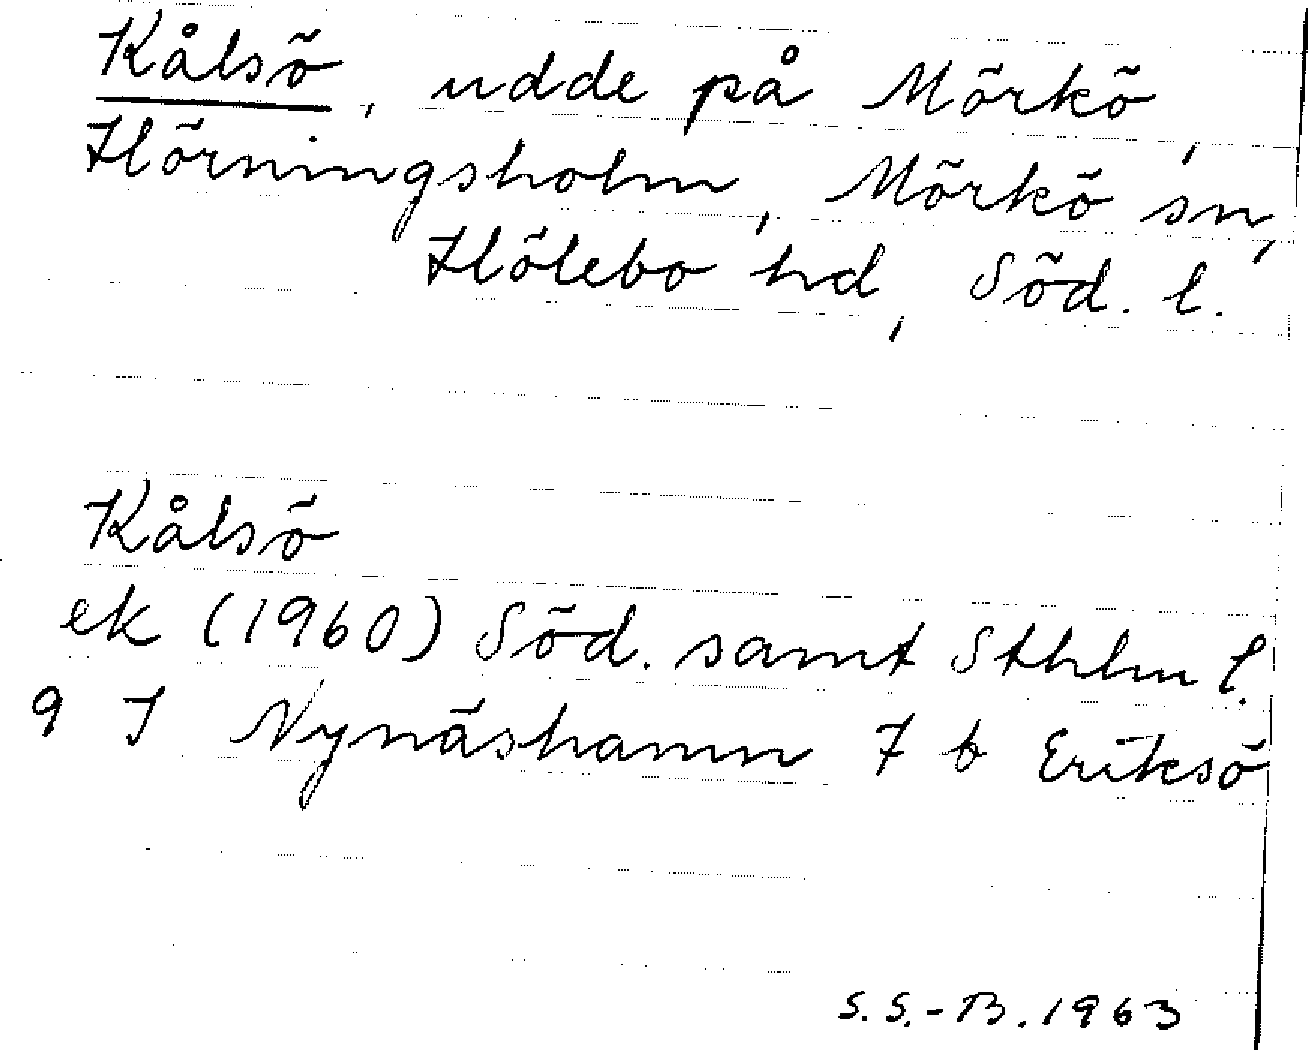 Kålsö, udde på Mörkö,
Hörningsholm, Mörkö sn,
Hölebo hd, Söd. l.
Kålsö
ek (1960) Söd. samt Sthlm l.
9 I Nynäshamn 7 b Eriksö
S.S.-B. 1963